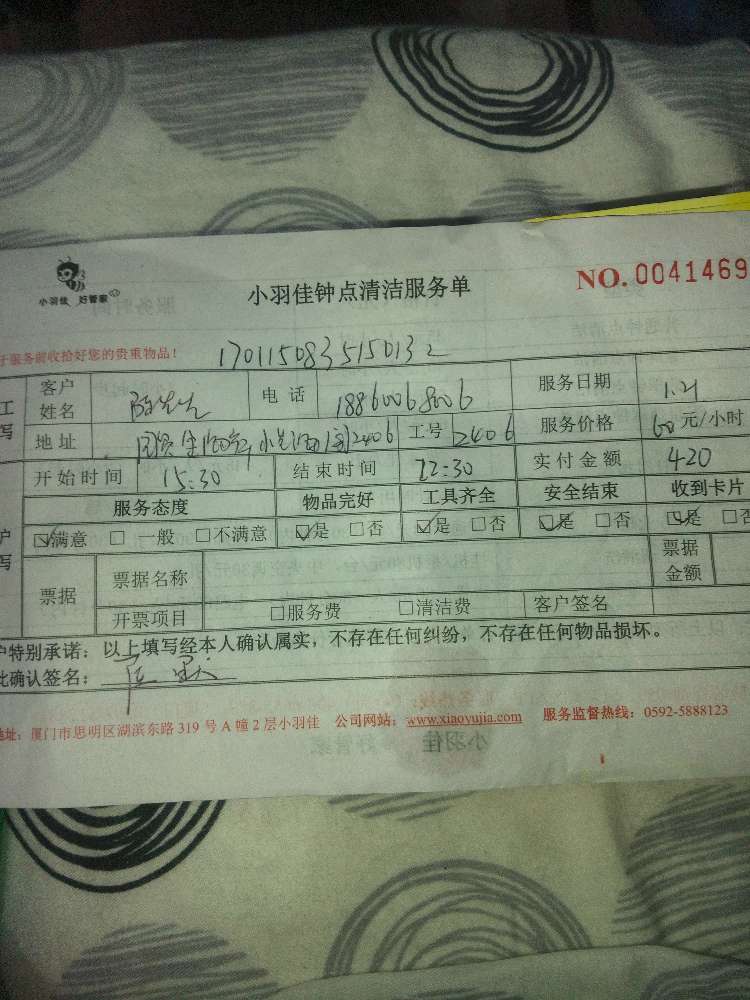 小羽佳 好管家
小羽佳钟点清洁服务单
NO. 0041469
于服务前收拾好您的贵重物品！
170115083515013 2
工 客户姓名 陈先生 电话 18860068006 服务日期 1.21
写 地址 2406 工号 2406 服务价格 60 元/小时
开始时间 15:30 结束时间 22:30 实付金额 420
服务态度 物品完好 工具齐全 安全结束 收到卡片
户 ☑满意 □ 一般 □不满意 ☑是 □否 ☑是 □否 ☑是 □否 ☑是 □否
写 票据 票据名称 票据金额
开票项目 □服务费 □清洁费 客户签名
户特别承诺：以上填写经本人确认属实，不存在任何纠纷，不存在任何物品损坏。
此确认签名：
地址：厦门市思明区湖滨东路 319 号 A 幢 2 层小羽佳 公司网站：www.xiaoyujia.com 服务监督热线：0592-5888123